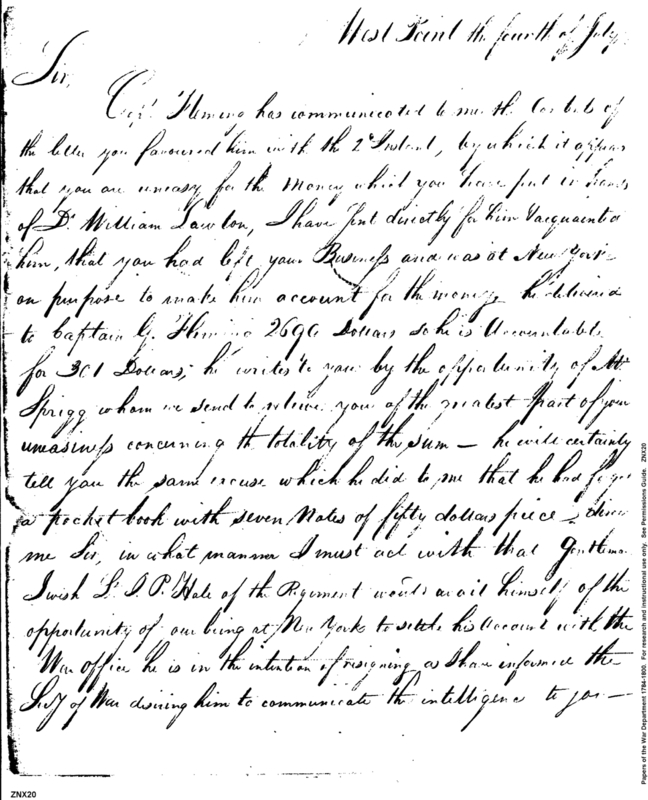 West Point the fourth of July
Sir,
Capt. Fleming has communicated to me the Contents of
the letter you favoured him with the 2d Instant, by which it appears
that you are uneasy for the money which you have put in hands
of Dr. William Lawton, I have sent directly for him & acquainted
him, that you had left your Business and was at New York
on purpose to make him account for the money, he delivered
to Captain G. Fleming 2696 Dollars so he is Accountable
for 301 Dollars; he writes to you by the opportunity of Mr
Sprigg whom we send to relieve you of the greatest part of your
uneasiness concerning the totality of the sum — he will certainly
tell you the same excuse which he did to me that he had forgot
a pocket book with seven Notes of fifty dollars piece
me Sir, in what manner I must act with that Gentleman
I wish Lt. I. P. Hale of the Regiment would avail himself of the
opportunity of our being at New York to settle his Account with the
War office he is in the intention of resigning as I have informed the
Secy of War desiring him to communicate the intelligence to you —
Papers of the War Department 1784-1800. For research and instructional use only. See Permissions Guide. ZNX20
ZNX20